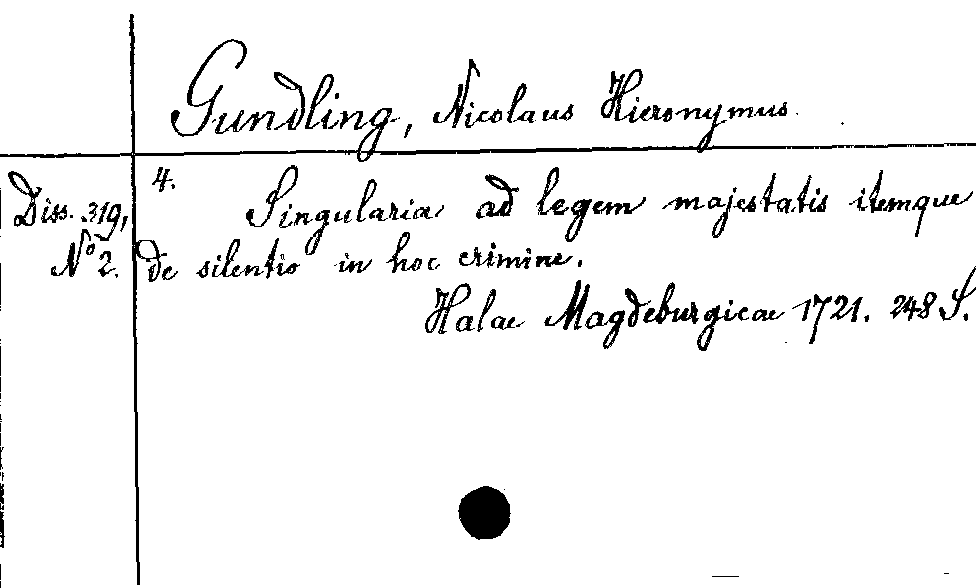 Gundling, Nicolaus Hieronymus.
4.
Diss. 319, Singularia ad legem majestatis itemque
No 2. de silentio in hoc crimine.
Halae Magdeburgicae 1721. 248 S.